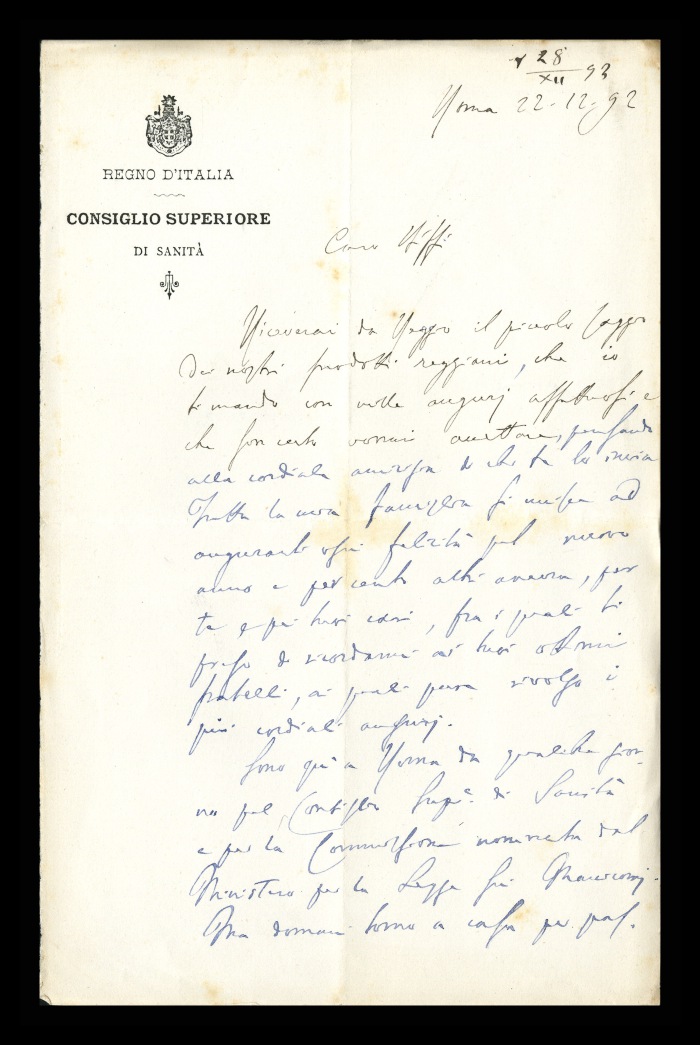 28
XII 92
Roma 22-12-92
REGNO D'ITALIA
CONSIGLIO SUPERIORE
DI SANITÀ
Caro
Riceverai da Reggio il piccolo saggio
dei nostri prodotti reggiani, che io
ti mando con mille augurj affettuosi e
che son certo vorrai accettare, pensando
alla cordiale amicizia di chi te lo invia
Tutta la mia famiglia si unisce ad
augurarti ogni felicità pel nuovo
anno e per cento altri ancora, per
te e pei tuoi cari, fra i quali ti
prego di ricordarmi ai tuoi ottimi
fratelli, ai quali pure rivolgo i
più cordiali augurj.
Sono qui a Roma da qualche gior-
no pel Consiglio Supe. di Sanità
e per la Commissione nominata dal
Ministero per la Legge sui Manicomj.
Ma domani torno a casa per pas-